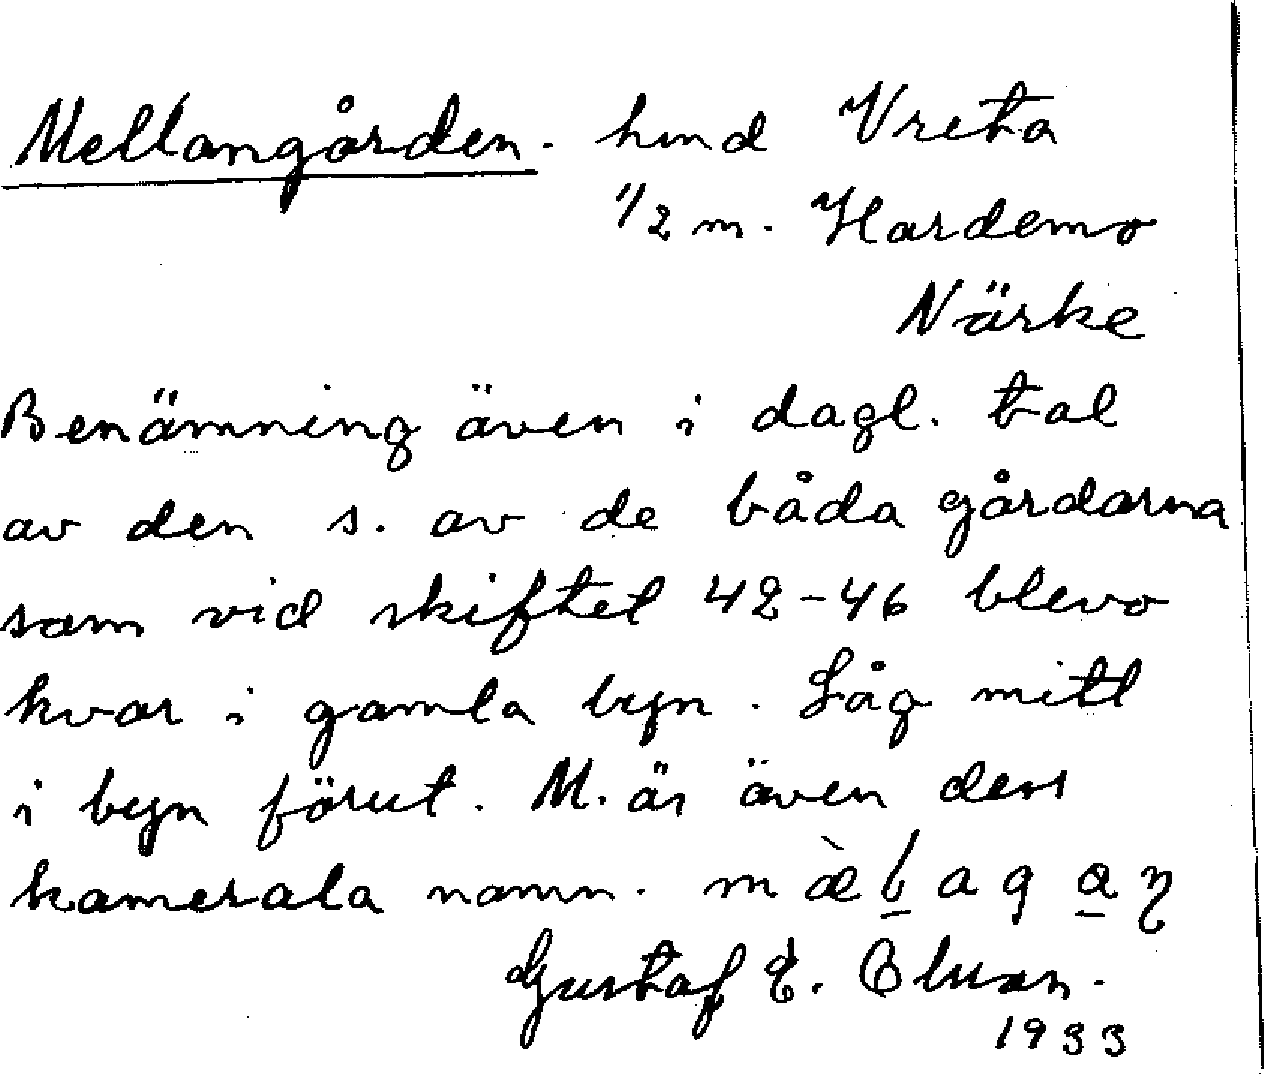 Mellangården. hmd Vreta
1/2 m. Hardemo
Närke
Benämning även i dagl. tal
av den s. av de båda gårdarna
som vid skiftet 42-46 blevo
kvar i gamla byn. Låg mitt
i byn förut. M. är även dess
kamerala namn.
Gustaf E.
1933